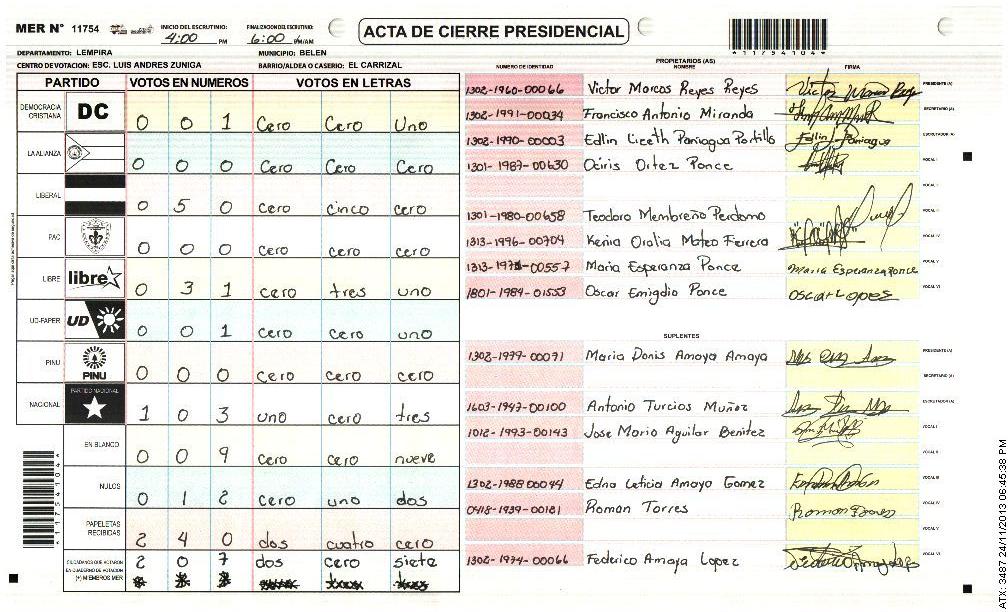 MER N° 11754 INICIO DEL ESCRUTINIO: 4:00 PM FINALIZACION DEL ESCRUTINIO: 6:00 PM/AM ACTA DE CIERRE PRESIDENCIAL *11754104*
DEPARTAMENTO: LEMPIRA MUNICIPIO: BELEN
CENTRO DE VOTACION: ESC. LUIS ANDRES ZUNIGA BARRIO/ALDEA O CASERIO: EL CARRIZAL
PARTIDO VOTOS EN NUMEROS VOTOS EN LETRAS
DEMOCRACIA CRISTIANA DC 0 0 1 Cero Cero Uno
LA ALIANZA 0 0 0 Cero Cero Cero
LIBERAL 0 5 0 cero cinco cero
PAC 0 0 0 cero cero cero
LIBRE libre 0 3 1 cero tres uno
UD-FAPER UD 0 0 1 cero cero uno
PINU PINU 0 0 0 cero cero cero
NACIONAL PARTIDO NACIONAL 1 0 3 uno cero tres
EN BLANCO 0 0 9 cero cero nueve
NULOS 0 1 2 cero uno dos
PAPELETAS RECIBIDAS 2 4 0 dos cuatro cero
CIUDADANOS QUE VOTARON EN CUADERNO DE VOTACION (+) MIEMBROS MER 2 0 7 dos cero siete
PROPIETARIOS (AS)
NUMERO DE IDENTIDAD NOMBRE FIRMA
1302-1960-00066 Victor Marcos Reyes Reyes PRESIDENTE (A)
1302-1991-00034 Francisco Antonio Miranda SECRETARIO (A)
1302-1990-00003 Edlin Liceth Paniagua Portillo Edlin Paniagua ESCRUTADOR (A)
1301-1987-00630 Osiris Ortez Ponce VOCAL I
VOCAL II
1301-1980-00658 Teodoro Membreño Perdomo VOCAL III
1313-1996-00704 Kenia Oralia Mateo Ferrera VOCAL IV
1313-1971-00557 Maria Esperanza Ponce Maria Esperanza Ponce VOCAL V
1801-1984-01553 Oscar Emigdio Ponce Oscar Lopes VOCAL VI
SUPLENTES
1302-1979-00071 Maria Donis Amaya Amaya PRESIDENTE (A)
SECRETARIO (A)
1603-1947-00100 Antonio Turcios Muñoz ESCRUTADOR (A)
1012-1993-00143 Jose Mario Aguilar Benitez VOCAL I
VOCAL II
1302-1988-00044 Edna Leticia Amaya Gomez VOCAL III
0418-1939-00181 Roman Torres VOCAL IV
VOCAL V
1302-1974-00066 Federico Amaya Lopez VOCAL VI
*11754104*
ATX: 3487 24/11/2013 06:45:38 PM